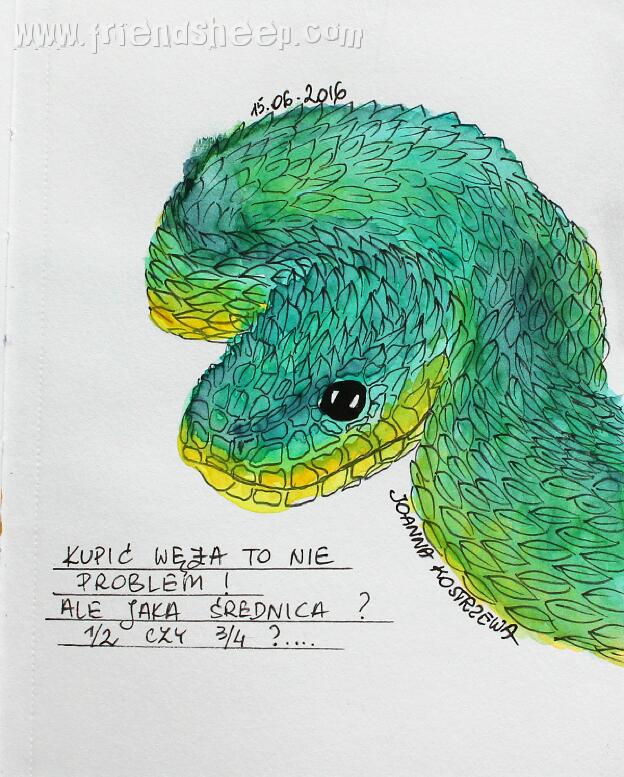 www.friendsheep.com
15.06.2016
JOANNA KOSTRZEWA
KUPIĆ WĘŻA TO NIE
PROBLEM !
ALE JAKA ŚREDNICA ?
1/2 CZY 3/4 ?....